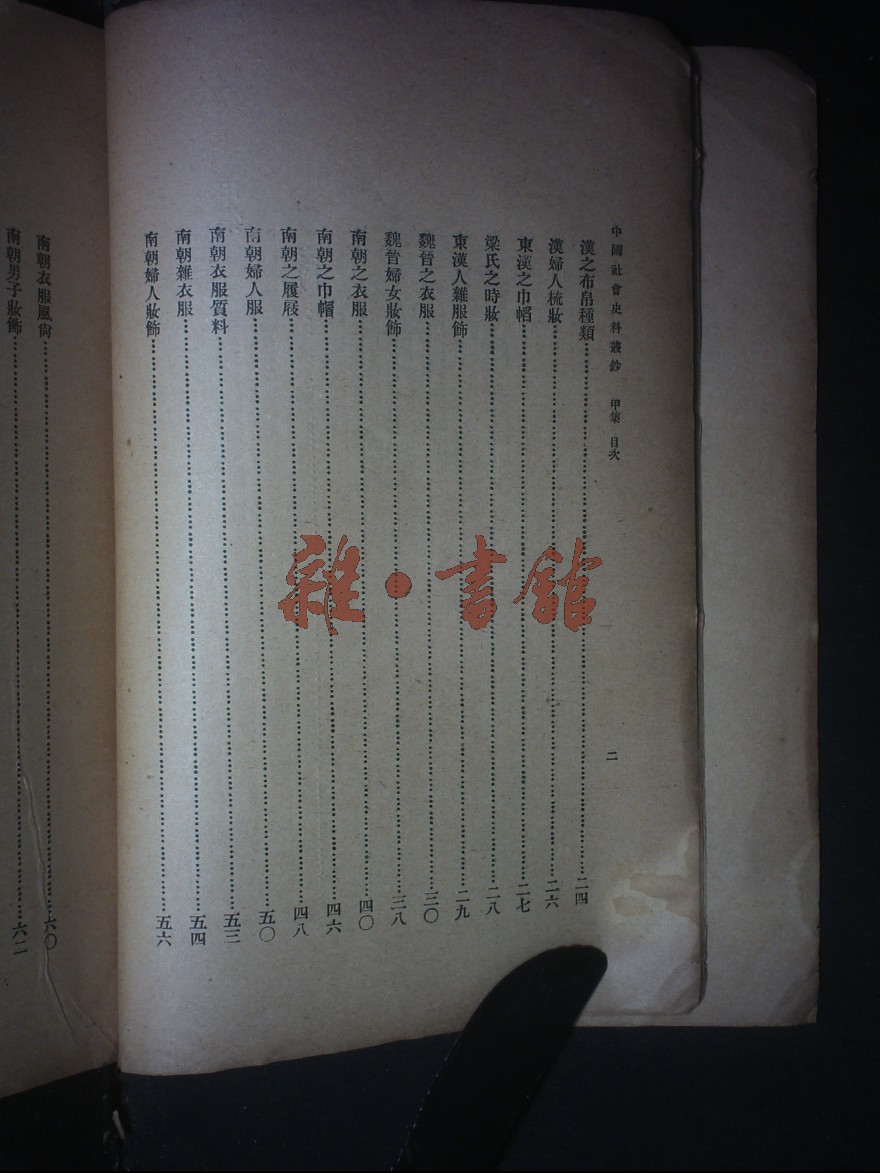 中國社會史料叢鈔 甲集 目次 二
漢之布帛種類……二四
漢婦人梳妝……二六
東漢之巾幍……二七
梁氏之時妝……二八
東漢人雜服飾……二九
魏晉之衣服……三〇
魏晉婦女妝飾……三八
南朝之衣服……四〇
南朝之巾帽……四六
南朝之履屐……四八
南朝婦人服……五〇
南朝衣服質料……五三
南朝雜衣服……五四
南朝婦人妝飾……五六
南朝衣服風尚……六〇
南朝男子妝飾……六二
雜·書館